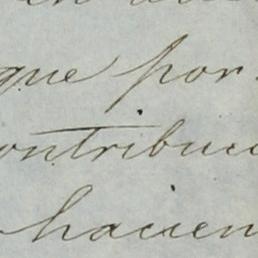 que por
ontribuci
hacien